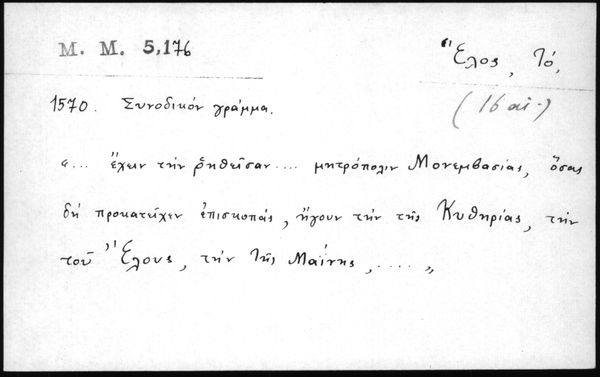 M. M. 5,176
Ἕλος, Τό,
(16 αἰ.)
1570. Συνοδικόν γράμμα.
«... ἔχειν τὴν ῥηθεῖσαν .... μητρόπολιν Μονεμβασίας, ὅσας
δή προκατεῖχεν ἐπισκοπάς, ἤγουν τὴν τῆς Κυθηρίας, τὴν
τοῦ Ἕλους, τὴν τῆς Μαΐνης, .... »